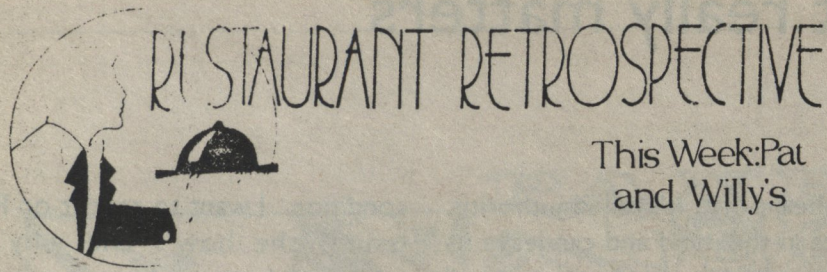 RESTAURANT RETROSPECTIVE
This Week:Pat
and Willy's